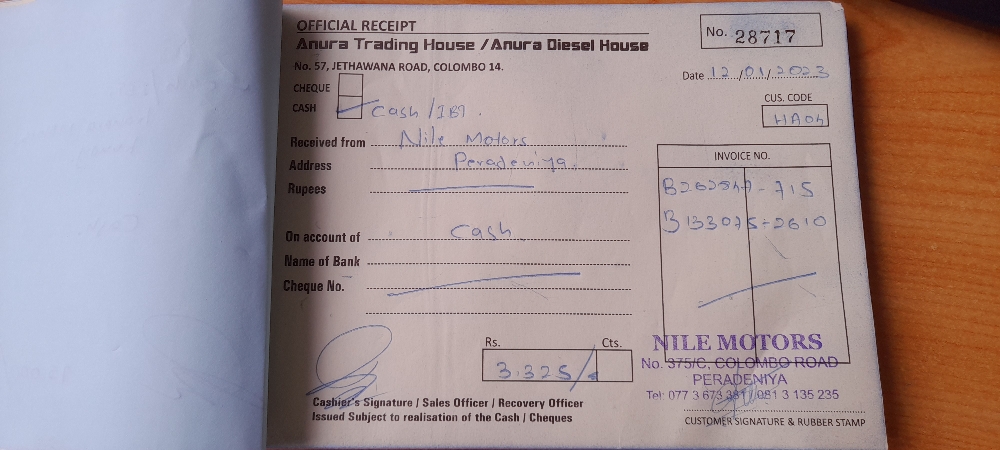 OFFICIAL RECEIPT
Anura Trading House / Anura Diesel House
No. 57, JETHAWANA ROAD, COLOMBO 14.
No. 28717
Date 12/01/2023
CHEQUE
CASH Cash / IBT.
CUS. CODE
HA04
Received from Nile Motors
Address Peradeniya.
Rupees
On account of Cash
Name of Bank
Cheque No.
INVOICE NO.
- 715
B 133075 - 2610
Rs. Cts.
3.325/
Cashier's Signature / Sales Officer / Recovery Officer
Issued Subject to realisation of the Cash / Cheques
NILE MOTORS
No. 375/C, COLOMBO ROAD
PERADENIYA
Tel: 077 3 673 / 081 3 135 235
CUSTOMER SIGNATURE & RUBBER STAMP